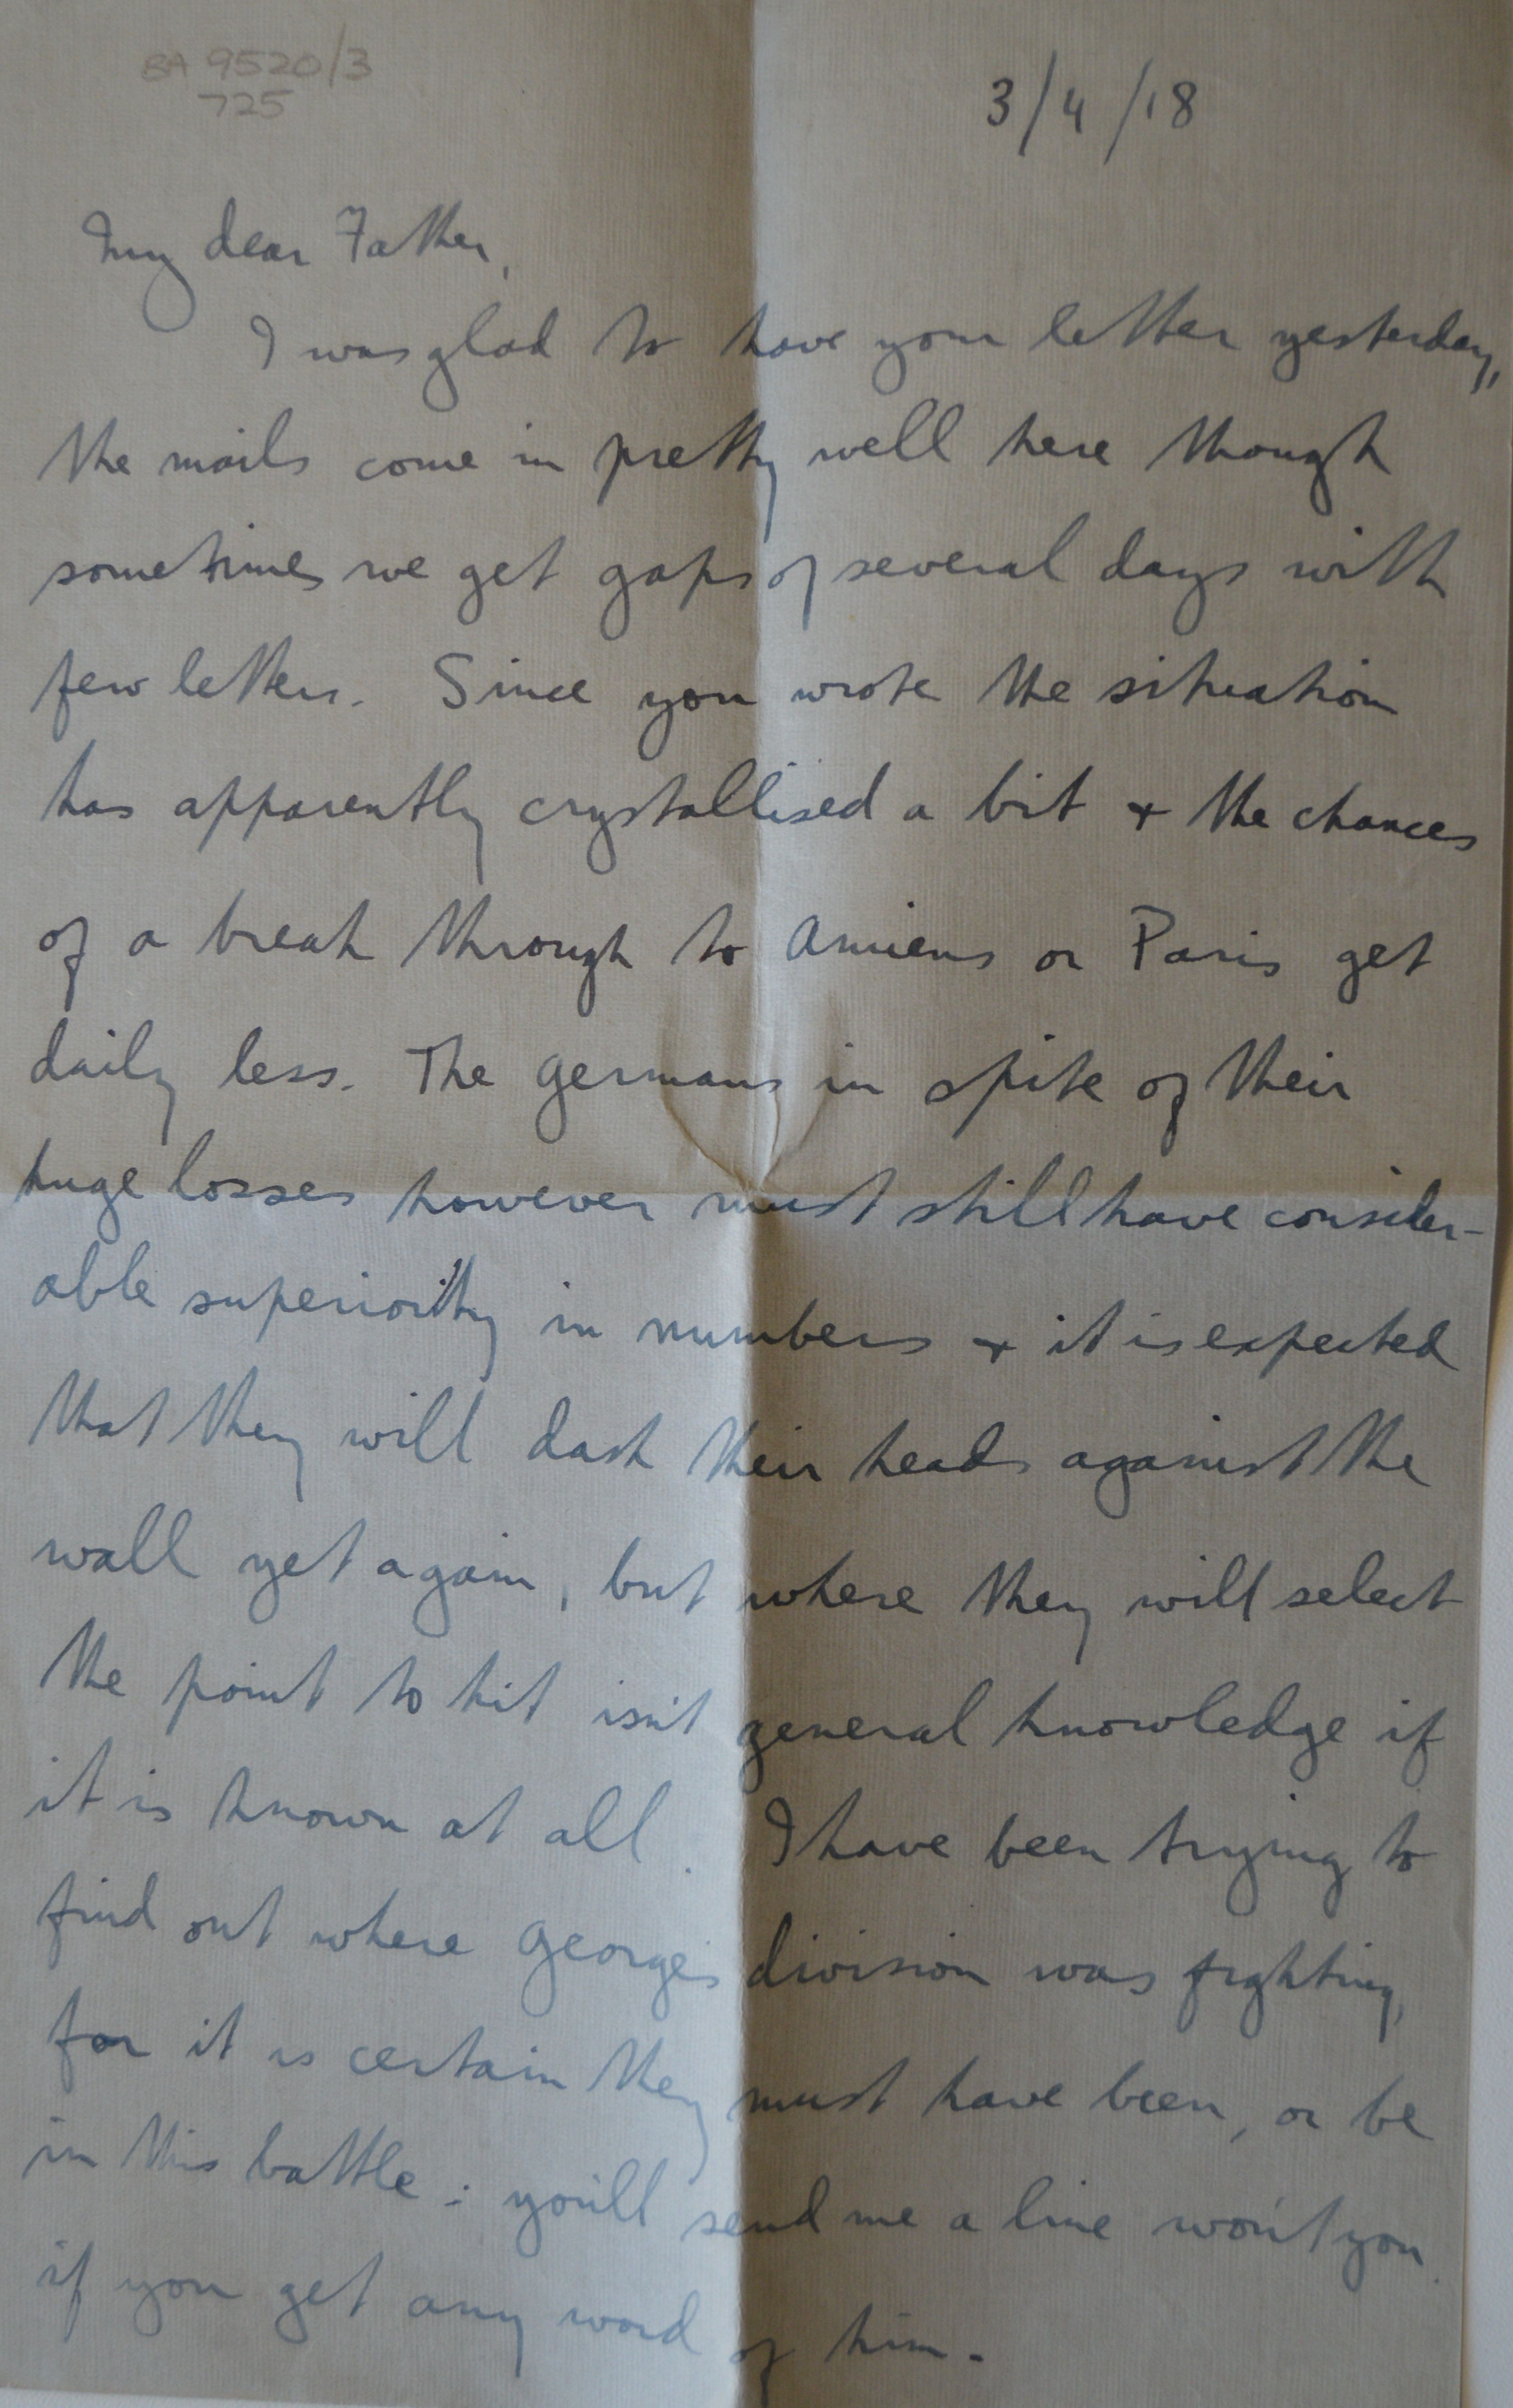 BA 9520/3
725
3/4/18
My dear Father,
I was glad to have your letter yesterday,
the mails come in pretty well here though
sometimes we get gaps of several days with
few letters. Since you wrote the situation
has apparently crystallised a bit + the chances
of a break through to Amiens or Paris get
daily less. The Germans in spite of their
huge losses however must still have consider-
able superiority in numbers + it is expected
that they will dash their heads against the
wall yet again, but where they will select
the point to hit isn't general knowledge if
it is known at all. I have been trying to
find out where George's division was fighting,
for it is certain they must have been, or be
in this battle: you'll send me a line won't you
if you get any word of him.